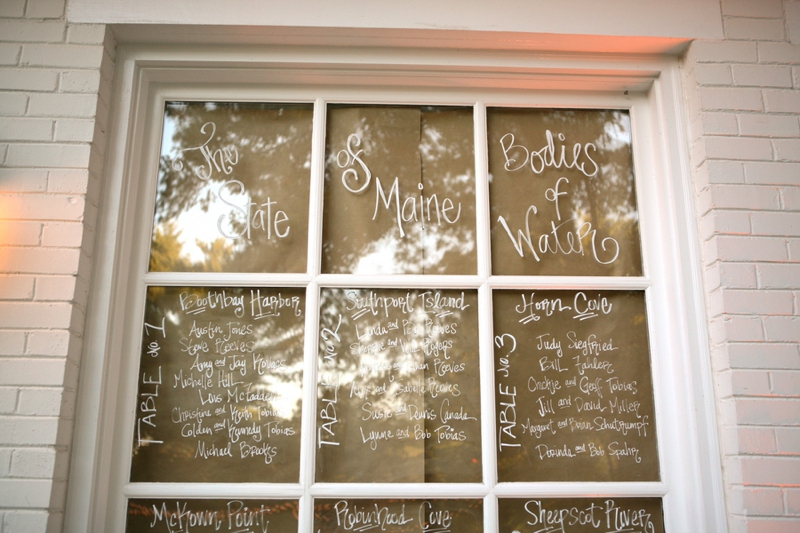 The
State
of
Maine
Bodies
of
Water
Boothbay Harbor
TABLE no 1
Austin Jones
Steve Reeves
Amy and Jay
Michelle Hill
Lois McFadden
Christine and Keith Tobias
Colden and Kennedy Tobias
Michael Brooks
Southport Island
TABLE no 2
Linda and Reeves
and
and Reeves
and Reeves
Susie and Dennis Canada
Lynne and Bob Tobias
Horn Cove
TABLE no. 3
Judy Siegfried
Bill
and Geoff Tobias
Jill and David Miller
Margaret and Brian
Dorinda and Bob Spahr
McKown Point
Robinhood Cove
Sheepscot River